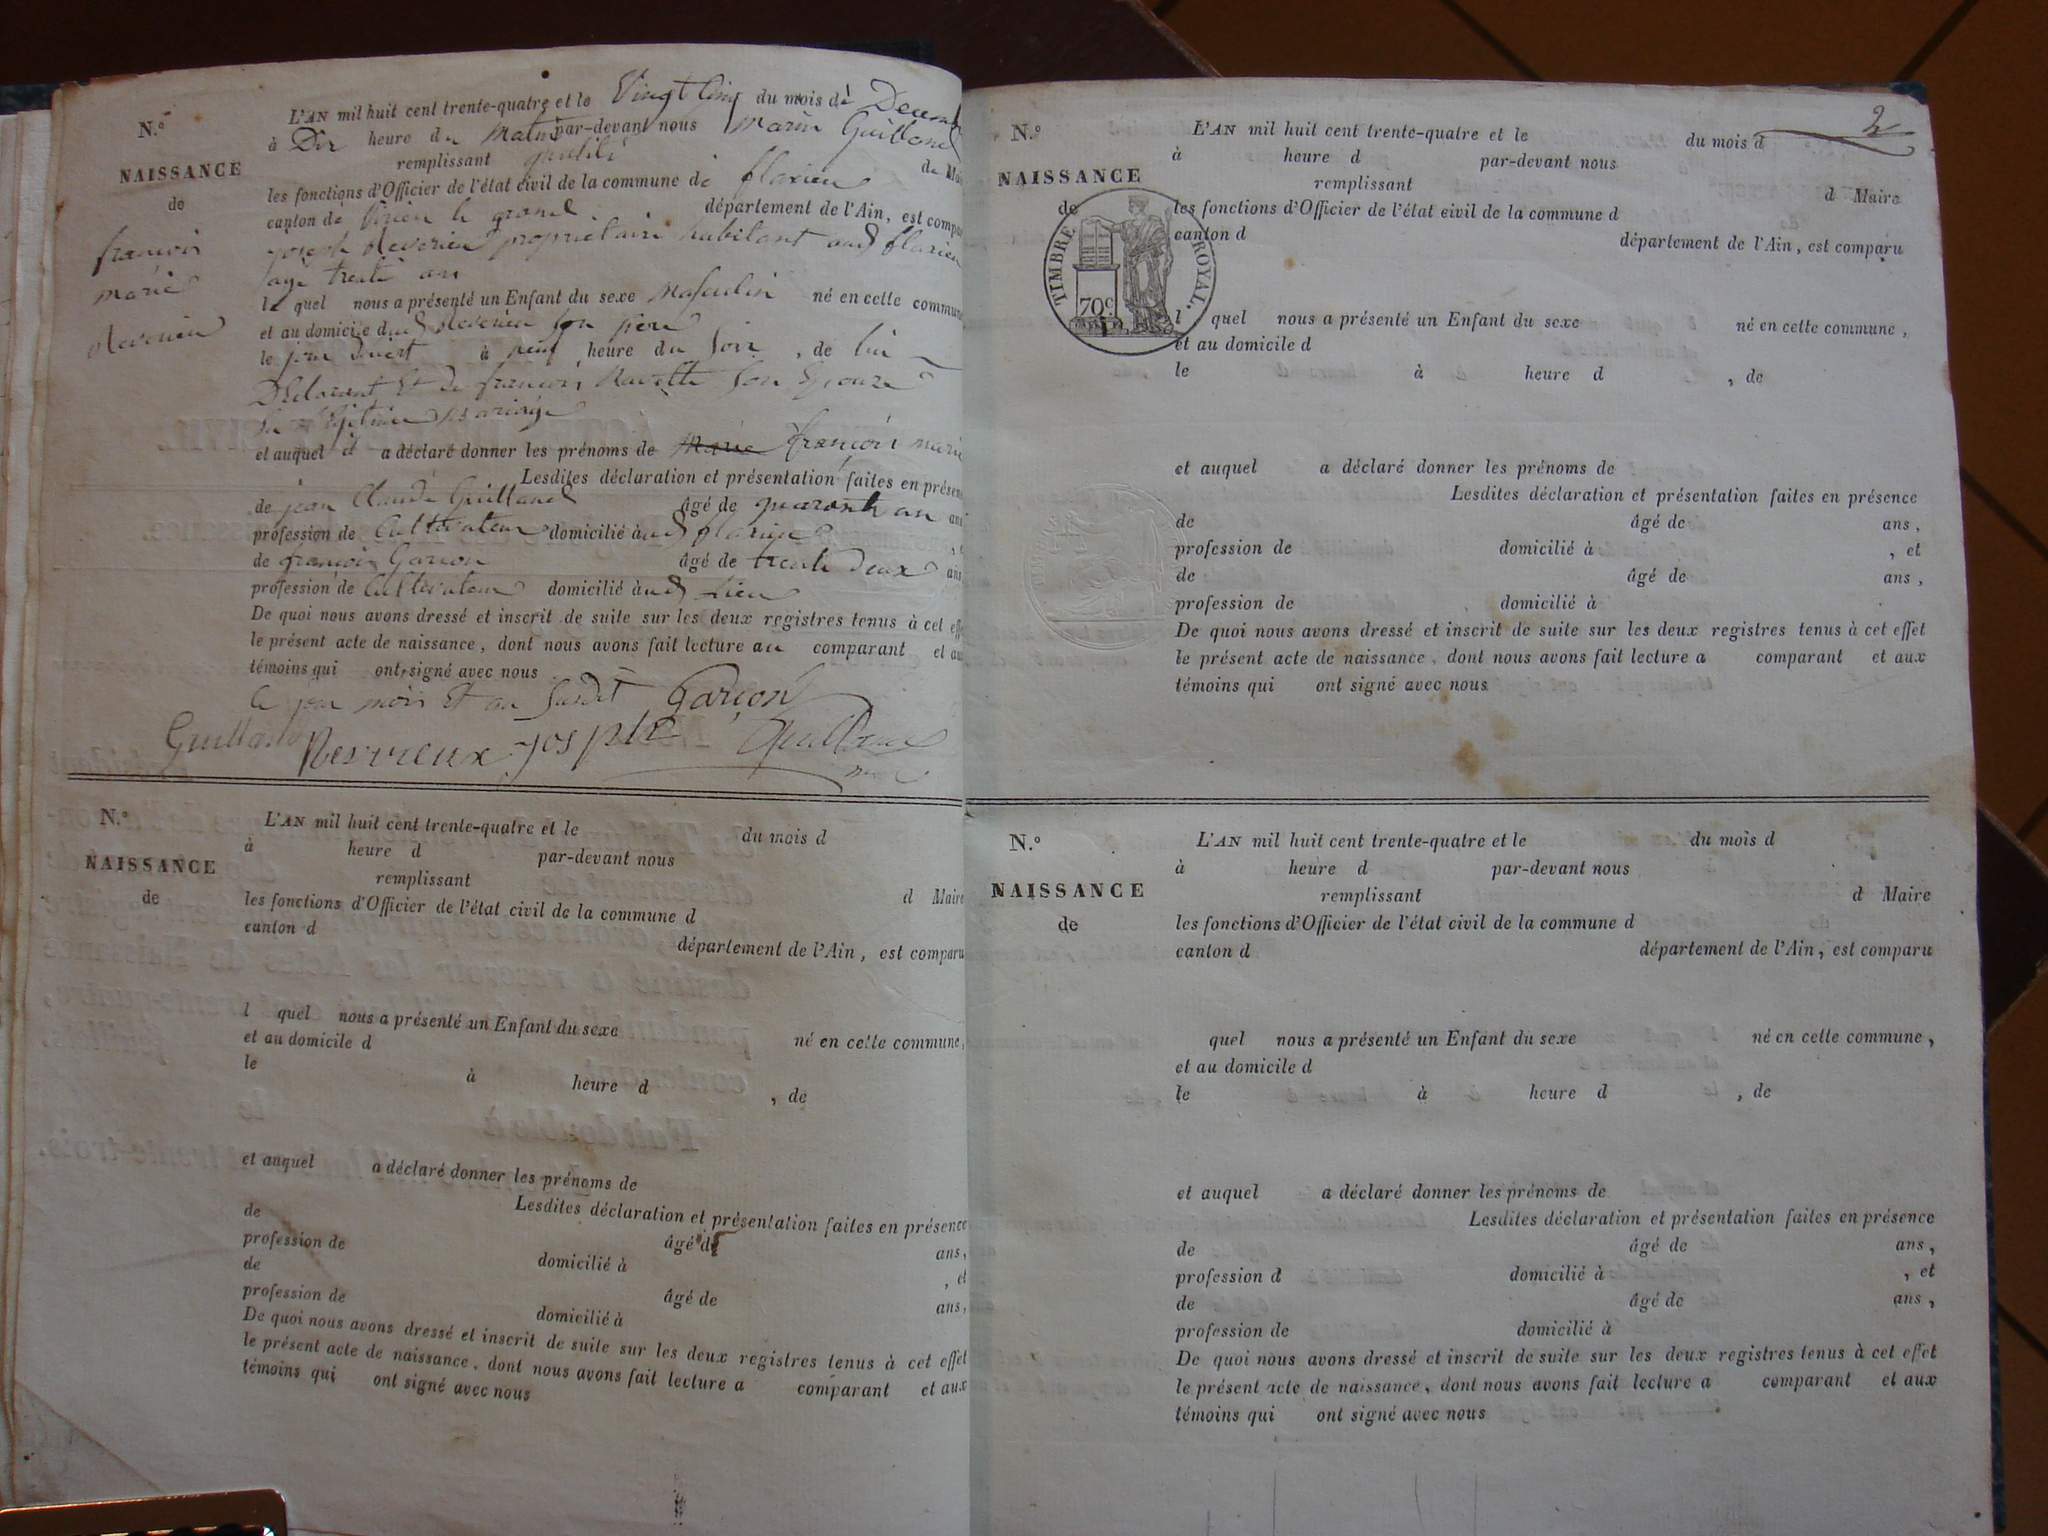 N.°
NAISSANCE
de
françois
marie
L'AN mil huit cent trente-quatre et le Vingt Cinq du mois de
à Dix heure du Matin par-devant nous Marin Guilland
remplissant
les fonctions d'Officier de l'état civil de la commune de flaxieu
canton de Virieu le grand département de l'Ain, est compar
joseph propriétaire habitant aud flaxieu
agé trente ans
le quel nous a présenté un Enfant du sexe Masculin né en cette commune
et au domicile dud son père
le jour à neuf heure du Soir, de lui
Déclarant Et de françois Son Epouse
légitime mariage
et auquel il a déclaré donner les prénoms de Marie françois marie
Lesdites déclaration et présentation faites en présen
de jean Claude Guilland âgé de quarante an ans
profession de Cultivateur domicilié à aud flaxieu
de françois Garcon âgé de trente deux ans
profession de Cultivateur domicilié à aud Lieu
De quoi nous avons dressé et inscrit de suite sur les deux registres tenus à cet eff
le présent acte de naissance, dont nous avons fait lecture au comparant et au
témoins qui ont signé avec nous
Le jour mois Et an Susdit Garçon
Guilland Nervieux joseph Guilland
N.°
NAISSANCE
de
L'AN mil huit cent trente-quatre et le du mois d
à heure d par-devant nous
remplissant d Maire
les fonctions d'Officier de l'état civil de la commune d
canton d département de l'Ain, est comparu
l quel nous a présenté un Enfant du sexe né en cette commune,
et au domicile d
le à heure d , de
et auquel a déclaré donner les prénoms de
Lesdites déclaration et présentation faites en présence
de âgé de ans,
profession de domicilié à , et
de âgé de ans,
profession de domicilié à
De quoi nous avons dressé et inscrit de suite sur les deux registres tenus à cet effet
le présent acte de naissance, dont nous avons fait lecture a comparant et aux
témoins qui ont signé avec nous
2
N.°
NAISSANCE
de
TIMBRE ROYAL.
70c
L'AN mil huit cent trente-quatre et le du mois d
à heure d par-devant nous
remplissant d Maire
les fonctions d'Officier de l'état civil de la commune d
canton d département de l'Ain, est comparu
l quel nous a présenté un Enfant du sexe né en cette commune,
et au domicile d
le à heure d , de
et auquel a déclaré donner les prénoms de
Lesdites déclaration et présentation faites en présence
de âgé de ans,
profession de domicilié à , et
de âgé de ans,
profession de domicilié à
De quoi nous avons dressé et inscrit de suite sur les deux registres tenus à cet effet
le présent acte de naissance, dont nous avons fait lecture a comparant et aux
témoins qui ont signé avec nous
N.°
NAISSANCE
de
L'AN mil huit cent trente-quatre et le du mois d
à heure d par-devant nous
remplissant d Maire
les fonctions d'Officier de l'état civil de la commune d
canton d département de l'Ain, est comparu
quel nous a présenté un Enfant du sexe né en cette commune,
et au domicile d
le à heure d , de
et auquel a déclaré donner les prénoms de
Lesdites déclaration et présentation faites en présence
de âgé de ans,
profession d domicilié à , et
de âgé de ans,
profession de domicilié à
De quoi nous avons dressé et inscrit de suite sur les deux registres tenus à cet effet
le présent acte de naissance, dont nous avons fait lecture a comparant et aux
témoins qui ont signé avec nous